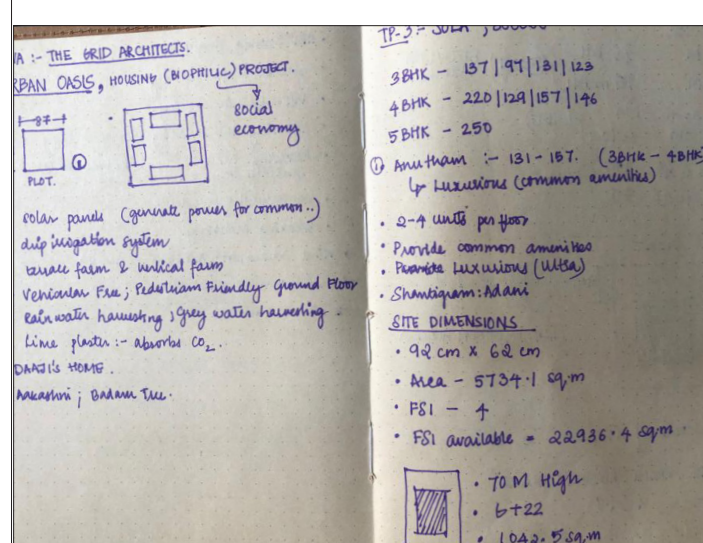 A :- THE GRID ARCHITECTS.
RBAN OASIS, HOUSING (BIOPHILIC) PROJECT.
social
economy
87
1
PLOT.
solar panels (generate power for common..)
drip irrigation system
terrace farm & vertical farm
Vehicular Free; Pedestrian Friendly Ground Floor
Rain water harvesting; Grey water harvesting.
Lime plaster :- absorbs CO2.
DAAJI'S HOME.
Aakashni; Badam Tree.
TP-3 :-
3BHK - 137|97|131|123
4BHK - 220|129|157|146
5BHK - 250
1 Anutham :- 131 - 157. (3BHK - 4BHK)
Luxurious (common amenities)
• 2-4 units per floor
• Provide common amenities
• Luxurious (Ultra)
• Shantigram: Adani
SITE DIMENSIONS
• 92 cm x 62 cm
• Area - 5734.1 sq.m
• FSI - 4
• FSI available = 22936.4 sqm.
• 70 M High
• 6+22
• 1042.5 sq.m